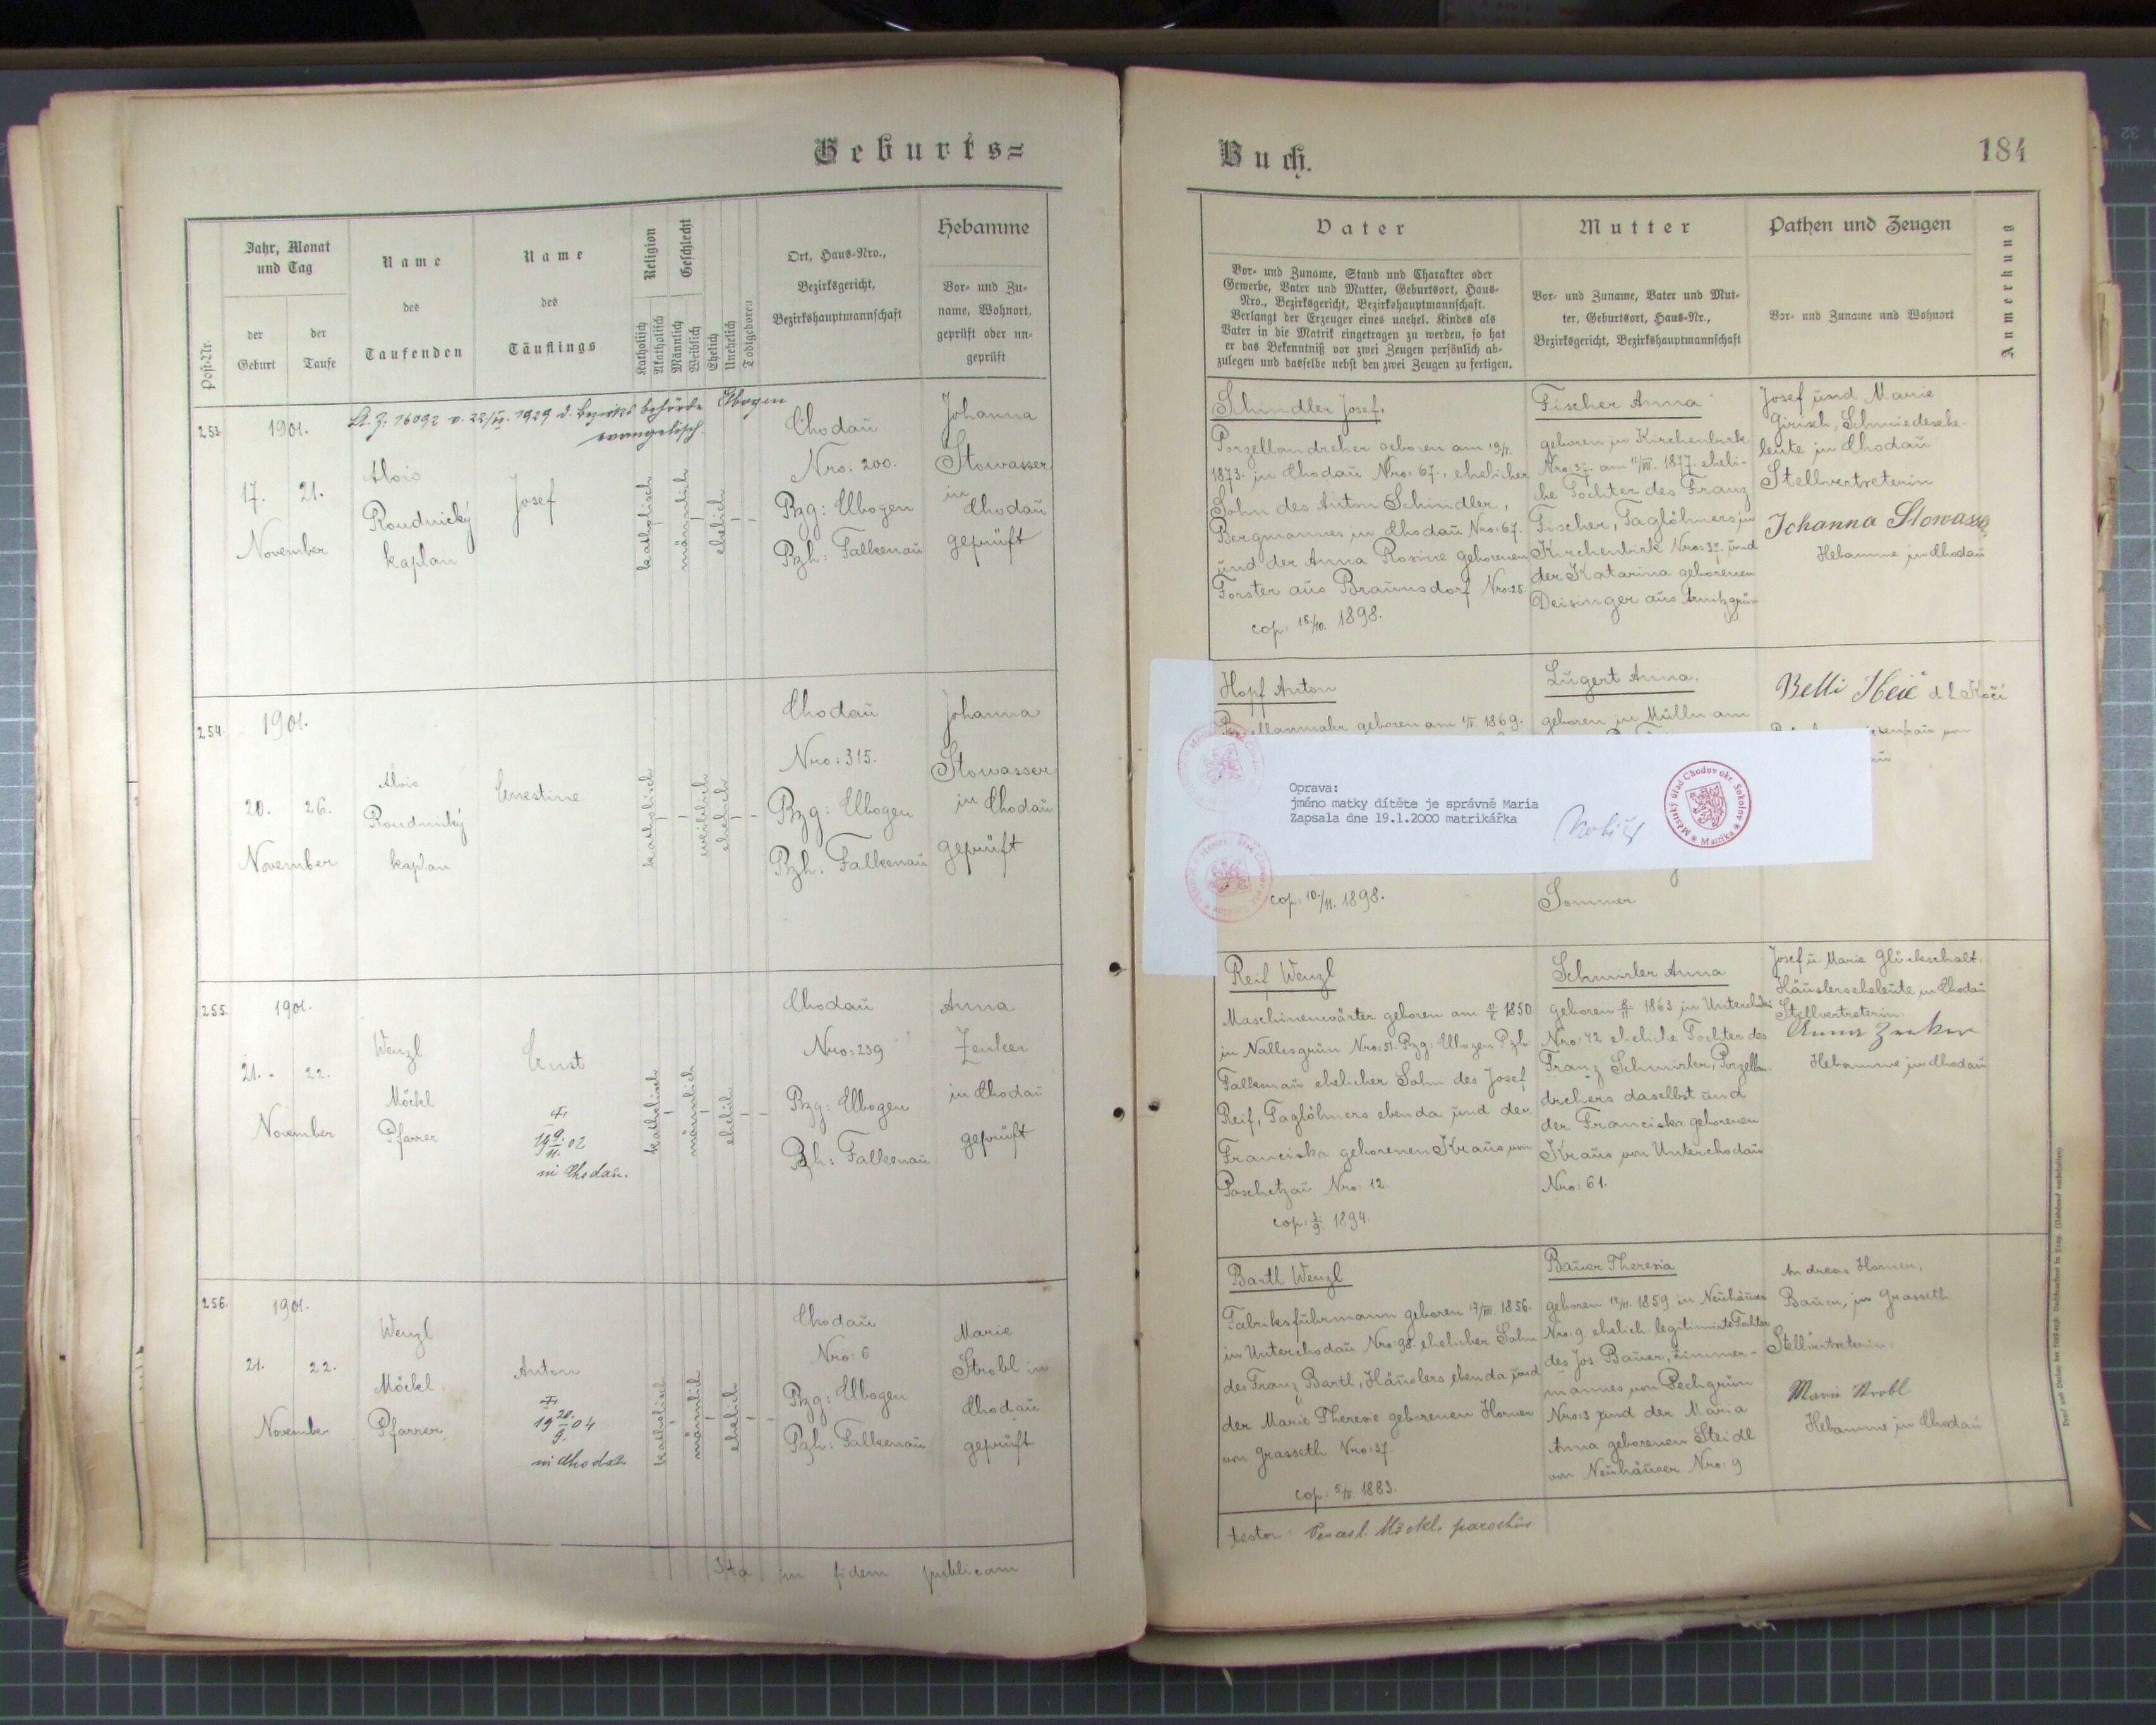 Geburts=
Post-Nr.
Jahr, Monat
und Tag
der
Geburt
der
Taufe
Name
des
Taufenden
Name
des
Täuflings
Religion
Katholisch
Akatholisch
Geschlecht
Männlich
Weiblich
Ehelich
Unehelich
Todtgeboren
Ort, Haus-Nro.,
Bezirksgericht,
Bezirkshauptmannschaft
Hebamme
Vor- und Zu-
name, Wohnort,
geprüft oder un-
geprüft
253.
1901.
17. 21.
November
1929 d. Bezirksbehörde Elbogen
evangelisch.
Alois
Roudnický
kaplan
Josef
katholisch
männlich
ehelich
Chodau
Nro: 200.
Bzg: Elbogen
Bzh: Falkenau
Johanna
Stowasser
in
Chodau
geprüft
254.
1901.
20. 26.
November
Alois
Roudnický
kaplan
Ernestine
katholisch
weiblich
ehelich
Chodau
Nro: 315.
Bzg: Elbogen
Bzh: Falkenau
Johanna
Stowasser
in Chodau
geprüft
255.
1901.
21. 22.
November
Wenzl
Möckl
Pfarrer
Ernst
19 9./11. 02
in Chodau.
katholisch
männlich
ehelich
Chodau
Nro: 239
Bzg: Elbogen
Bzh: Falkenau
Anna
Zenker
in Chodau
geprüft
256.
1901.
21. 22.
November
Wenzl
Möckl
Pfarrer
Anton
19 20./9. 04
in Chodau
katholisch
männlich
ehelich
Chodau
Nro: 6
Bzg: Elbogen
Bzh: Falkenau
Marie
Strobl in
Chodau
geprüft
Ita in fidem publicam
Buch.
184
Vater
Vor- und Zuname, Stand und Charakter oder
Gewerbe, Vater und Mutter, Geburtsort, Haus-
Nro., Bezirksgericht, Bezirkshauptmannschaft.
Verlangt der Erzeuger eines unehel. Kindes als
Vater in die Matrik eingetragen zu werden, so hat
er das Bekenntniß vor zwei Zeugen persönlich ab-
zulegen und dasselbe nebst den zwei Zeugen zu fertigen.
Mutter
Vor- und Zuname, Vater und Mut-
ter, Geburtsort, Haus-Nr.,
Bezirksgericht, Bezirkshauptmannschaft
Pathen und Zeugen
Vor- und Zuname und Wohnort
Anmerkung
Schindler Josef,
Porzellandreher geboren am
1873. in Chodau Nro: 67., ehelicher
Sohn des Anton Schindler,
Bergmannes in Chodau Nro: 67.
und der Anna Rosine geborenen
Forster aus Braunsdorf Nro: 28.
cop: 18./10. 1898.
Fischer Anna
geboren in Kirchenbirk
Nro: 37. am 11/VIII. 1877. eheli-
che Tochter des Franz
Fischer, Taglöhners in
Kirchenbirk Nro: 37. und
der Katarina geborenen
Deisinger aus Arnitzgrün
Josef und Marie
Girisch, Schmiedesehe-
leute in Chodau
Stellvertreterin
Johanna Stowasser
Hebamme in Chodau
Hopf Anton
geboren am 1869.
Lugert Anna.
geboren in Mülln am
Belli
Oprava:
jméno matky dítěte je správně Maria
Zapsala dne 19.1.2000 matrikářka
Městský úřad Chodov okr. Sokolov
Matrika
cop: 10./11. 1898.
Sommer
Reif Wenzl
Maschinenwärter geboren am 1850.
in Nallesgrün Nro: 51. Bzg: Elbogen Bzh:
Falkenau ehelicher Sohn des Josef
Reif, Taglöhners ebenda und der
Franciska geborenen Kraus von
Poschetzau Nro: 12.
cop: 3./9. 1894.
Schmirler Anna
geboren 1863 in Unterchodau
Nro: 42 eheliche Tochter des
Franz Schmirler, Porzellan-
drehers daselbst und
der Franciska geborenen
Kraus von Unterchodau
Nro: 61.
Josef u. Marie Glückschalt,
Häuslerseheleute in Chodau
Stellvertreterin:
Anna Zenker
Hebamme in Chodau
Bartl Wenzl
Fabriksfuhrmann geboren 17/VIII. 1856.
in Unterchodau Nro: 98. ehelicher Sohn
des Franz Bartl, Häuslers ebenda und
der Marie Theresie geborenen Horner
von Grasseth Nro: 37.
cop: 5/IV. 1883.
Bauer Theresia
geboren 1859 in Neuhäuser
Nro: 9. ehelich legitimirte Tochter
des Jos. Bauer, Zimmer-
mannes von Pechgrün
Nro: 3 und der Maria
Anna geborenen Steidl
von Neuhäuser Nro: 9
Andreas Horner,
Bauer, in Grasseth
Stellvertreterin:
Marie Strobl
Hebamme in Chodau
testor: Möckl, parochus.